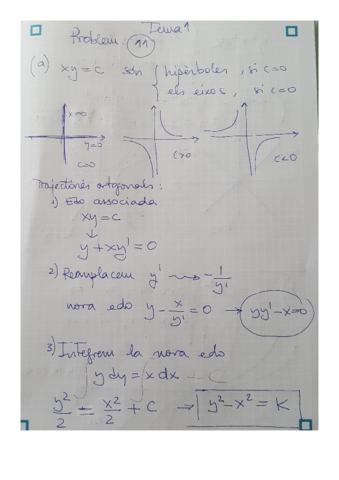 Tema 1
Problem. 11
(a) xy = c són { hipèrboles, si c=0
els eixos, si c=0
x=0
y=0
c=0
c>0
c<0
Trajectòries ortogonals:
1) Edo associada
xy = c
↓
y + xy' = 0
2) Reemplacem y' ⟿ -1/y'
nova edo y - x/y' = 0 → yy' - x = 0
3) Integrem la nova edo
∫ y dy = ∫ x dx - C
y²/2 = x²/2 + C → y² - x² = K